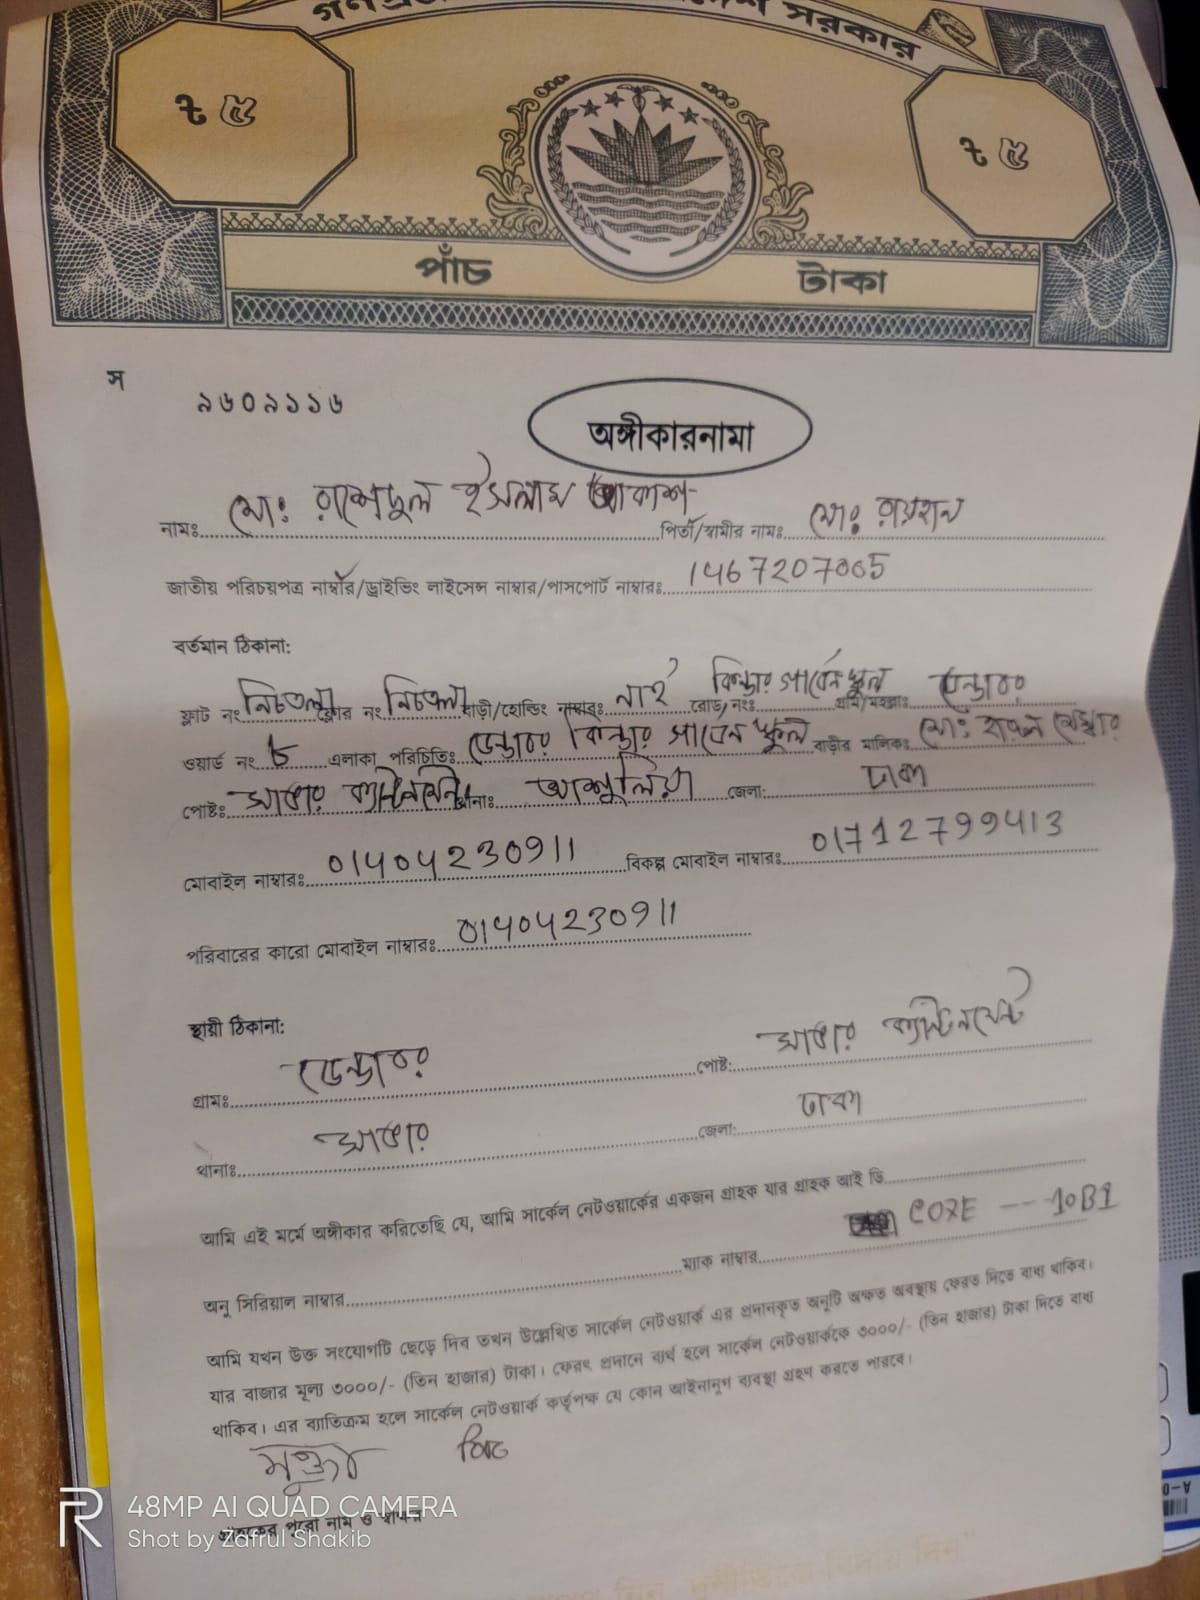 সরকার
৳ ৫
৳ ৫
পাঁচ টাকা
স
৯৬০৯১১৬
অঙ্গীকারনামা
নামঃ মোঃ রাশেদুল ইসলাম আকাশ পিতা/স্বামীর নামঃ মোঃ রায়হান
জাতীয় পরিচয়পত্র নাম্বার/ড্রাইভিং লাইসেন্স নাম্বার/পাসপোর্ট নাম্বারঃ 1467207005
বর্তমান ঠিকানা:
ফ্লাট নং নিচতলা ফ্লোর নং নিচতলা বাড়ী/হোল্ডিং নাম্বারঃ নাই রোড/নংঃ কিন্ডার গার্টেন স্কুল গ্রাম/মহল্লাঃ ডেন্ডাবর
ওয়ার্ড নং ৮ এলাকা পরিচিতিঃ ডেন্ডাবর কিন্ডার গার্টেন স্কুল বাড়ীর মালিকঃ মোঃ মেম্বার
পোষ্টঃ সাভার ক্যান্টনমেন্ট থানাঃ আশুলিয়া জেলা: ঢাকা
মোবাইল নাম্বারঃ 01404230911 বিকল্প মোবাইল নাম্বারঃ 01712799413
পরিবারের কারো মোবাইল নাম্বারঃ 01404230911
স্থায়ী ঠিকানা:
গ্রামঃ ডেন্ডাবর পোষ্ট: সাভার ক্যান্টনমেন্ট
থানাঃ সাভার জেলা: ঢাকা
আমি এই মর্মে অঙ্গীকার করিতেছি যে, আমি সার্কেল নেটওয়ার্কের একজন গ্রাহক যার গ্রাহক আই ডি
অনু সিরিয়াল নাম্বার ম্যাক নাম্বার C07E --- 10B1
আমি যখন উক্ত সংযোগটি ছেড়ে দিব তখন উল্লেখিত সার্কেল নেটওয়ার্ক এর প্রদানকৃত অনুটি অক্ষত অবস্থায় ফেরত দিতে বাধ্য থাকিব।
যার বাজার মূল্য ৩০০০/- (তিন হাজার) টাকা। ফেরৎ প্রদানে ব্যর্থ হলে সার্কেল নেটওয়ার্ককে ৩০০০/- (তিন হাজার) টাকা দিতে বাধ্য
থাকিব। এর ব্যাতিক্রম হলে সার্কেল নেটওয়ার্ক কর্তৃপক্ষ যে কোন আইনানুগ ব্যবস্থা গ্রহণ করতে পারবে।
মুক্তা
গ্রাহকের পুরো নাম ও স্বাক্ষর
48MP AI QUAD CAMERA
Shot by Zafrul Shakib